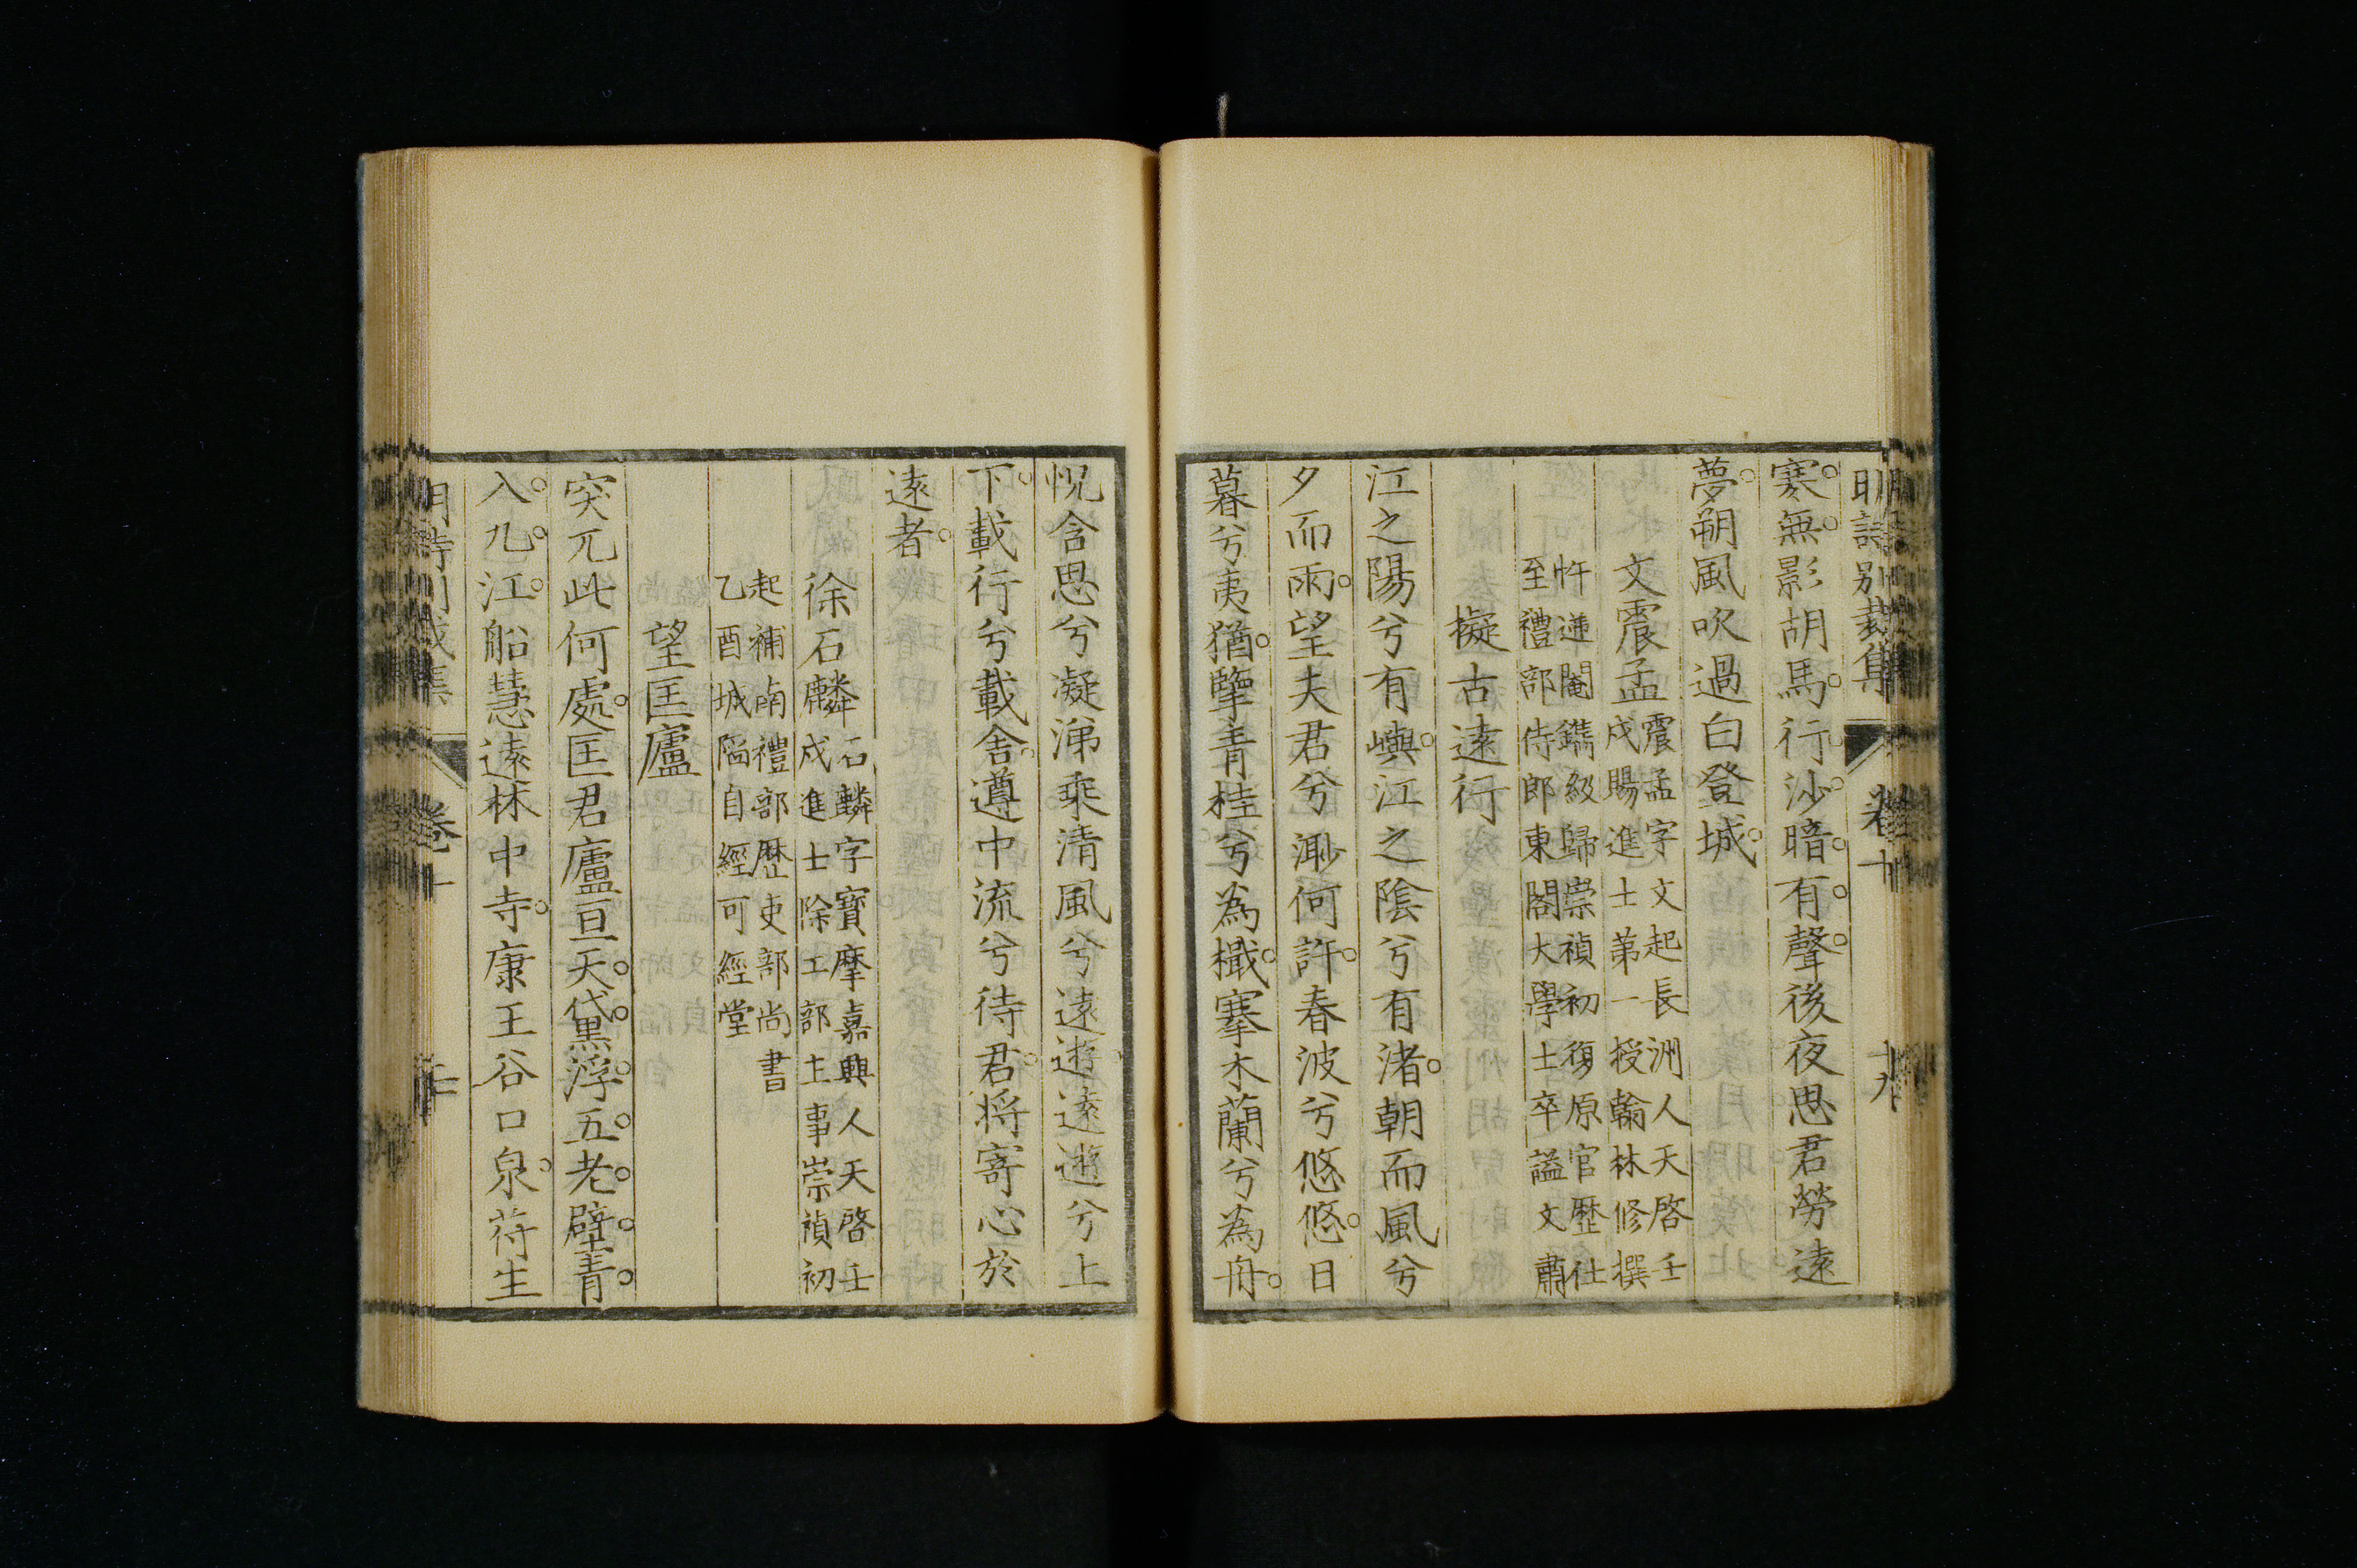 明詩別裁集 卷十 十九
寒。無。影胡馬。行。沙。暗。有。聲。後夜思君勞遠
夢。朔風吹過白登城。
文震孟 震孟字文起長洲人天啓壬
戍賜進士苐一授翰林修撰
忤逆閹鐫級歸崇禎初復原官歷仕
至禮部侍郎東閣大學士卒謚文肅
擬古遠行
江之陽兮有嶼。江之陰兮有渚。朝而風兮
夕而雨。望夫君兮渺何許。春波兮悠悠。日
暮兮夷猶。擥青桂兮為檝。搴木蘭兮為舟。
怳含思兮凝涕乘清風兮遠遊遠遊兮上
下。載行兮載舍。遵中流兮待君。將寄心於
遠者。
徐石麟 石麟字寶摩嘉興人天啓壬
戍進士除工部主事崇禎初
起補南禮部歷吏部尚書
乙酉城陷自經可經堂
望匡廬
突兀此何處。匡君廬亘天。黛。浮。五。老。壁。青。
入。九。江。船慧遠林中寺。康王谷口泉。荷生
卷十